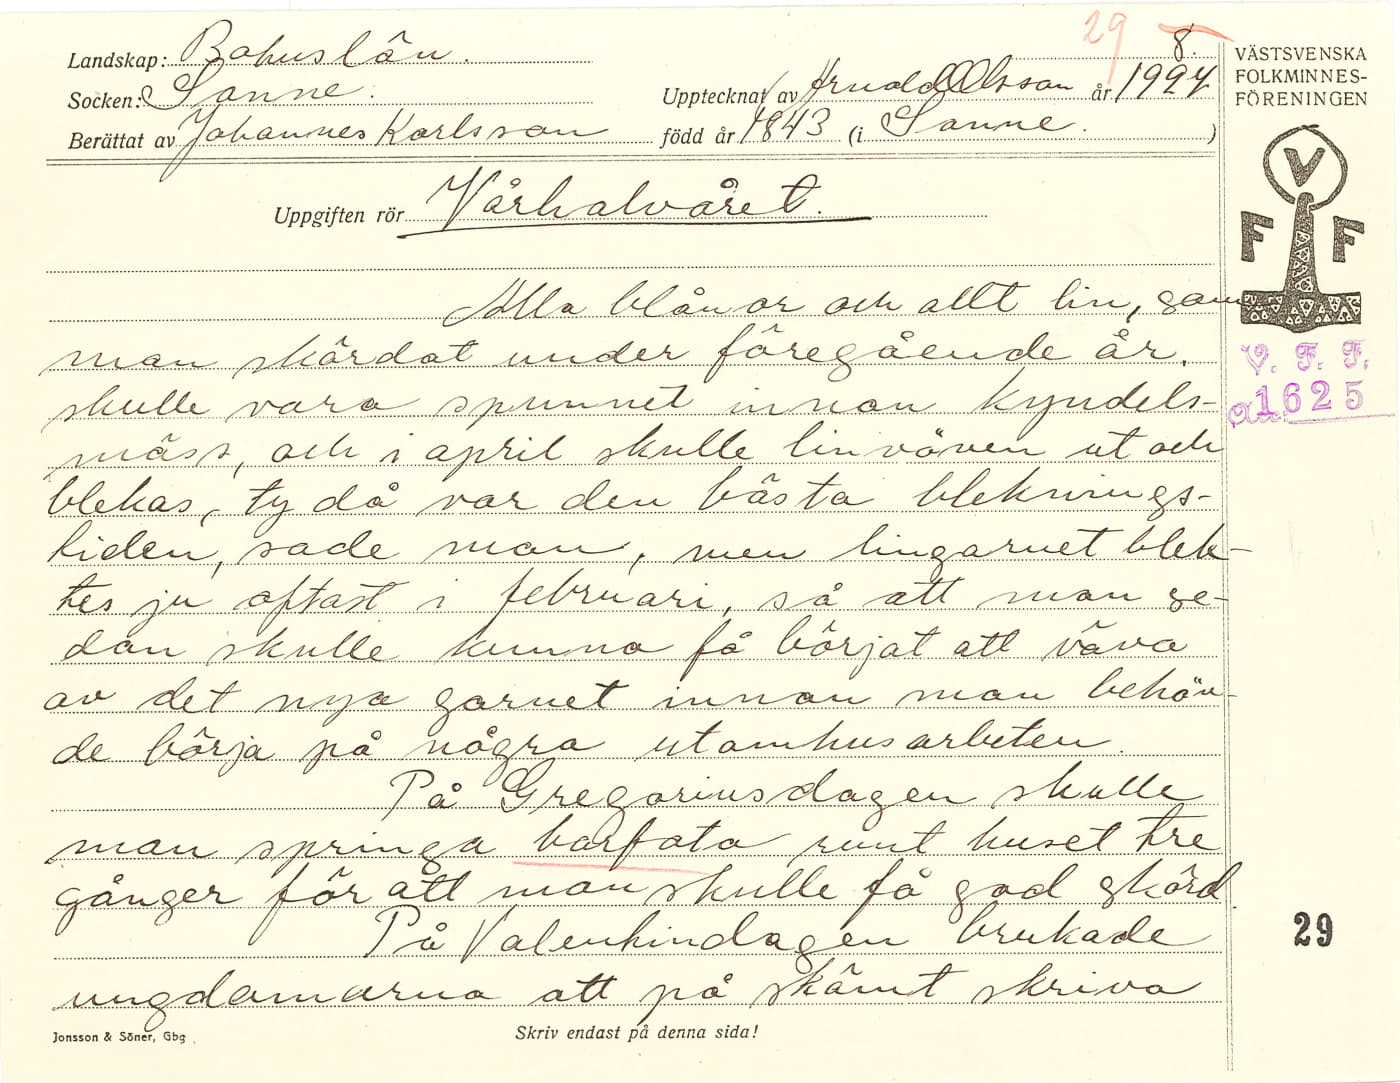 29 8.
Landskap: Bohuslän.
Socken: Sanne.
Upptecknat av Arnold Olsson år 1927
Berättat av Johannes Karlsson född år 1843 (i Sanne. )
VÄSTSVENSKA
FOLKMINNES-
FÖRENINGEN
V
F F
Uppgiften rör Vårhalvåret.
Alla blånor och allt lin, som
man skördat under föregående år,
skulle vara spunnet innan kyndels-
mäss, och i april skulle linväven ut och
blekas, ty då var den bästa bleknings-
tiden, sade man, men lingarnet blek-
tes ju oftast i februari, så att man se-
dan skulle kunna få börjat att väva
av det nya garnet innan man behöv-
de börja på några utomhusarbeten.
På Gregoriusdagen skulle
man springa barfota runt huset tre
gånger för att man skulle få god skörd.
På Valentindagen brukade
ungdomarna att på skämt skriva
V. F. F.
1625
29
Jonsson & Söner, Gbg.
Skriv endast på denna sida!